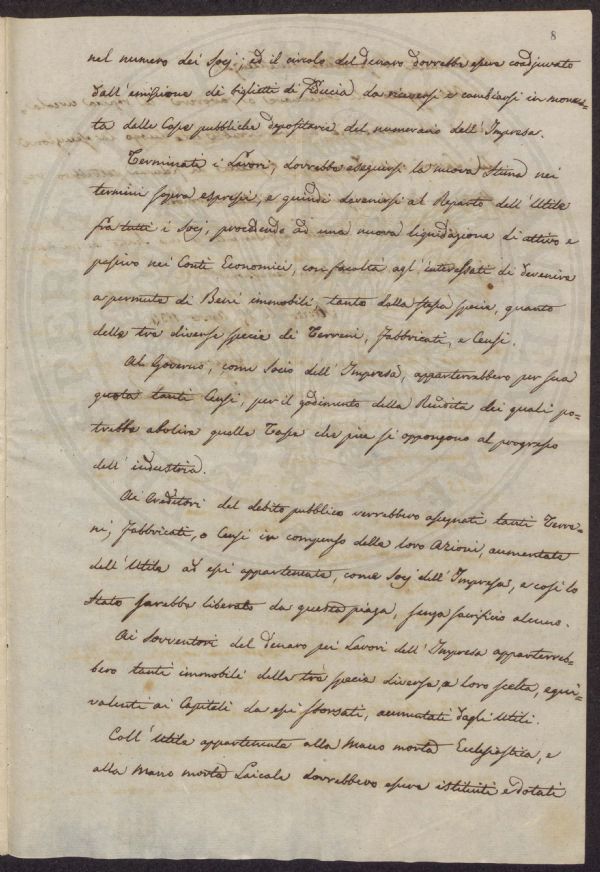 8
nel numero dei Socj; ed il circolo del denaro dovrebbe essere coadjuvato
dall'emissione di biglietti di fiducia da riceversi e cambiarsi in mone=
ta dalle Casse pubbliche depositarie del numerario dell'Impresa.
Terminati i Lavori, dovrebbe eseguirsi la nuova Stima nei
termini sopra espressi, e quindi devenirsi al Reparto dell'Utile
fra tutti i Socj, procedendo ad una nuova liquidazione di attivo e
passivo nei Conti Economici, con facoltà agl'interessati di devenire
a permute di Beni immobili, tanto della stessa specie, quanto
delle trè diverse specie di Terreni, Fabbricati, e Censi.
Al Governo, come Socio dell'Impresa, apparterrebbero per sua
quota tanti Censi, per il godimento della Rendita dei quali po=
trebbe abolire quelle Tasse che più si oppongono al progresso
dell'industria.
Ai Creditori del debito pubblico verrebbero assegnati tanti Terre=
ni, Fabbricati, o Censi in compenso delle loro Azioni, aumentate
dell'Utile ad essi appartenente, come Socj dell'Impresa, e così lo
Stato sarebbe liberato da questa piaga, senza sacrificio alcuno.
Ai Sovventori del denaro pei Lavori dell'Impresa apparterreb=
bero tanti immobili della trè specie diverse, a loro scelta, equi=
valenti ai Capitali da essi sborsati, aumentati dagli Utili.
Coll'Utile appartenente alla Mano morta Ecclesiastica, e
alla Mano morta Laicale dovrebbero essere istituiti e dotati